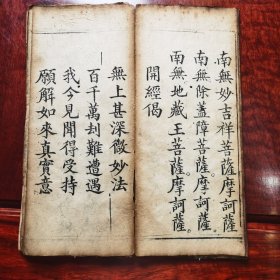 南無妙吉祥菩薩摩訶薩
南無除盖障菩薩。摩訶薩。
南無地藏王菩薩。摩訶薩。
開經偈
無上甚深微妙法
百千萬刦難遭遇
我今見聞得受持
願解如來真實意